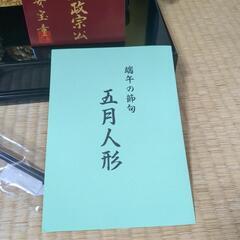 政宗公
端午の節句
五月人形